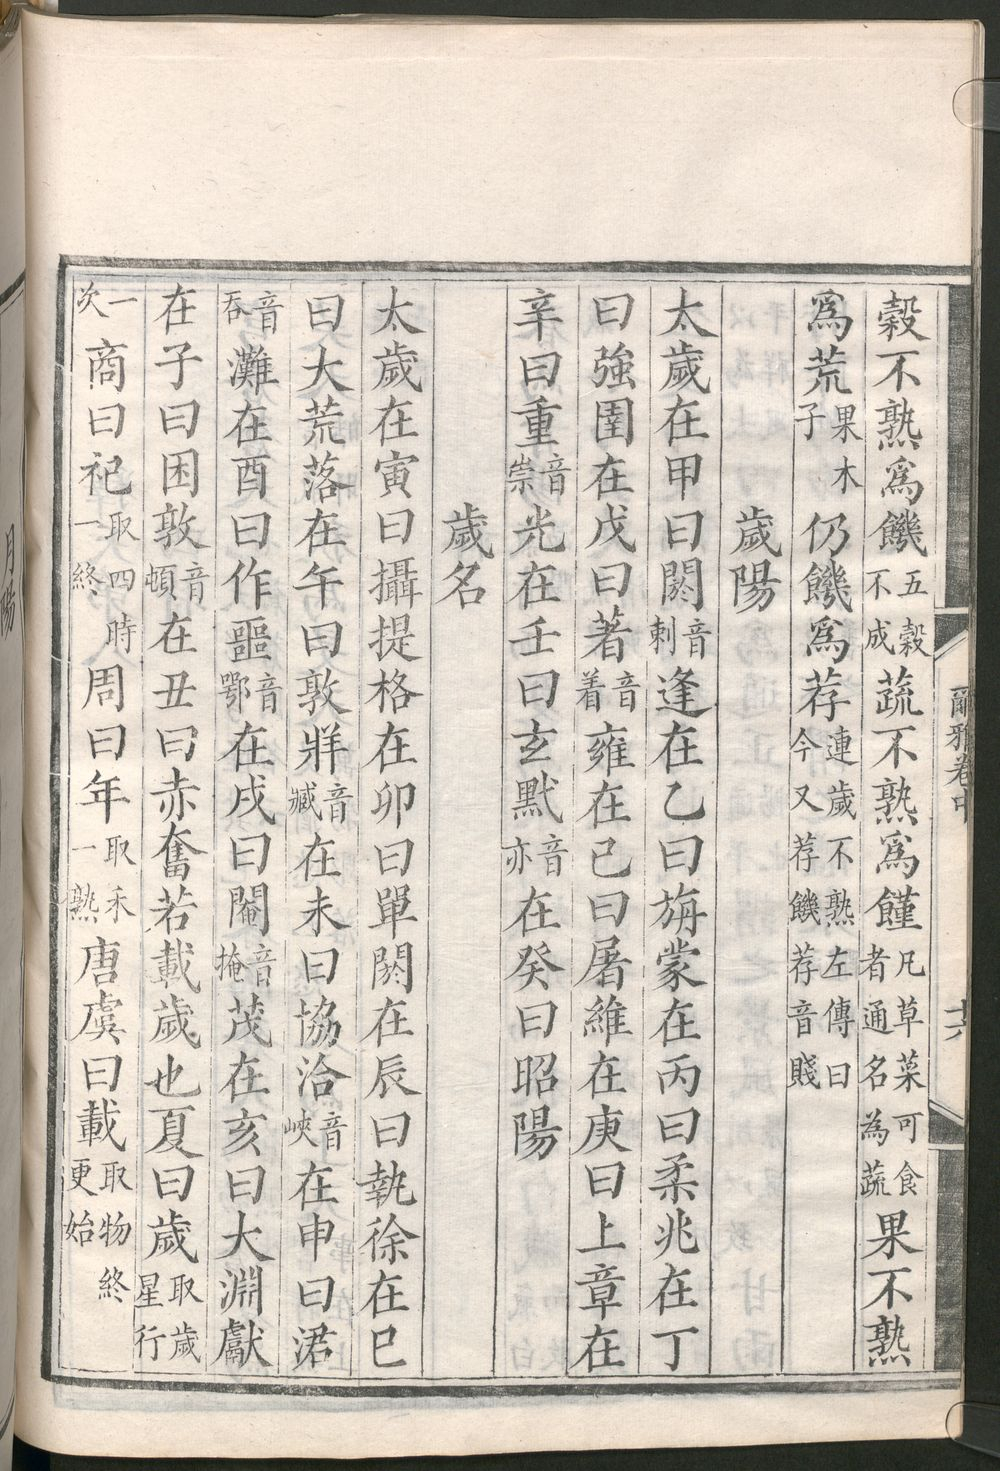 穀不熟爲饑五穀不成蔬不熟爲饉凡草菜可食者通名為蔬果不熟
爲荒果木子仍饑爲荐連歲不熟左傳曰今又荐饑荐音賤
歲陽
太歲在甲曰閼音剌逢在乙曰旃蒙在丙曰柔兆在丁
曰強圉在戊曰著音着雍在己曰屠維在庚曰上章在
辛曰重音崇光在壬曰玄黓音亦在癸曰昭陽
歲名
太歲在寅曰攝提格在卯曰單閼在辰曰執徐在巳
曰大荒落在午曰敦牂音臧在未曰協洽音峽在申曰涒
音吞灘在酉曰作噩音鄂在戌曰閹音掩茂在亥曰大淵獻
在子曰困敦音頓在丑曰赤奮若載歲也夏曰歲取歲星行
一次商曰祀取四時一終周曰年取禾一熟唐虞曰載取物終更始
爾雅卷中
十六
月陽